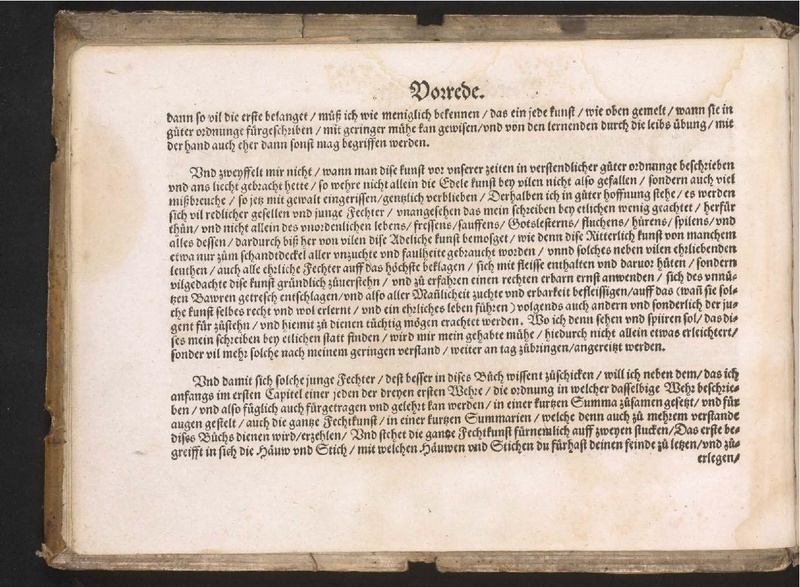 Vorrede.
dann so vil die erste belanget / můß ich wie meniglich bekennen / das ein jede kunst / wie oben gemelt / wann sie in
gůter ordnunge fürgeschriben / mit geringer můhe kan gewisen / vnd von den lernenden durch die leibs übung / mit
der hand auch eher dann sonst mag begriffen werden.
Vnd zweyffelt mir nicht / wann man dise kunst vor vnserer zeiten in verstendlicher gůter ordnunge beschrieben
vnd ans liecht gebracht hette / so wehre nicht allein die Edele kunst bey vilen nicht also gefallen / sondern auch viel
mißbreuche / so jetz mit gewalt eingerissen / gentzlich verblieben / Derhalben ich in gůter hoffnung stehe / es werden
sich vil redlicher gesellen vnd junge Fechter / vnangesehen das mein schreiben bey etlichen wenig geachtet / herfür
thůn / vnd nicht allein des vnordenlichen lebens / fressens / sauffens / Gotslesterns / fluchens / hůrens / spilens / vnd
alles dessen / dardurch biß her von vilen dise Adeliche kunst bemosget / wie denn dise Ritterlich kunst von manchem
etwa nur zům schandtdeckel aller vnzuchte vnd faulheite gebraucht worden / vnnd solches neben vilen ehrliebenden
leuthen / auch alle ehrliche Fechter auff das höchste beklagen / sich mit fleisse enthalten vnd daruor hüten / sondern
vilgedachte dise kunst gründlich zůuerstehn / vnd zů erfahren einen rechten erbarn ernst anwenden / sich des vnnü-
tzen Bawren getresch entschlagen / vnd also aller Mañlicheit zuchte vnd erbarkeit befleissigen / auff das (wañ sie sol-
che kunst selbes recht vnd wol erlernt / vnd ein ehrliches leben führen) volgends auch andern vnd sonderlich der ju-
gent für zůstehn / vnd hiemit zů dienen tüchtig mögen erachtet werden. Wo ich denn sehen vnd spüren sol / das di-
ses mein schreiben bey etlichen statt finden / wird mir mein gehabte mühe / hiedurch nicht allein etwas erleichtert /
sonder vil mehr solche nach meinem geringen verstand / weiter an tag zůbringen / angereitzt werden.
Vnd damit sich solche junge Fechter / dest besser in dises Bůch wissent zůschicken / will ich neben dem / das ich
anfangs im ersten Capitel einer jeden der dreyen ersten Wehre / die ordnung in welcher dasselbige Wehr beschrie-
ben / vnd also füglich auch fürgetragen vnd gelehrt kan werden / in einer kurtzen Summa zůsamen gesetzt / vnd für
augen gestelt / auch die gantze Fechtkunst / in einer kurtzen Summarien / welche denn auch zů mehrem verstande
dises Bůchs dienen wird / erzehlen / Vnd stehet die gantze Fechtkunst fürnemlich auff zweyen stucken / Das erste be-
greifft in sich die Häuw vnd Stich / mit welchen Häuwen vnd Stichen du fürhast deinen feinde zů letzen / vnd zů-
erlegen /